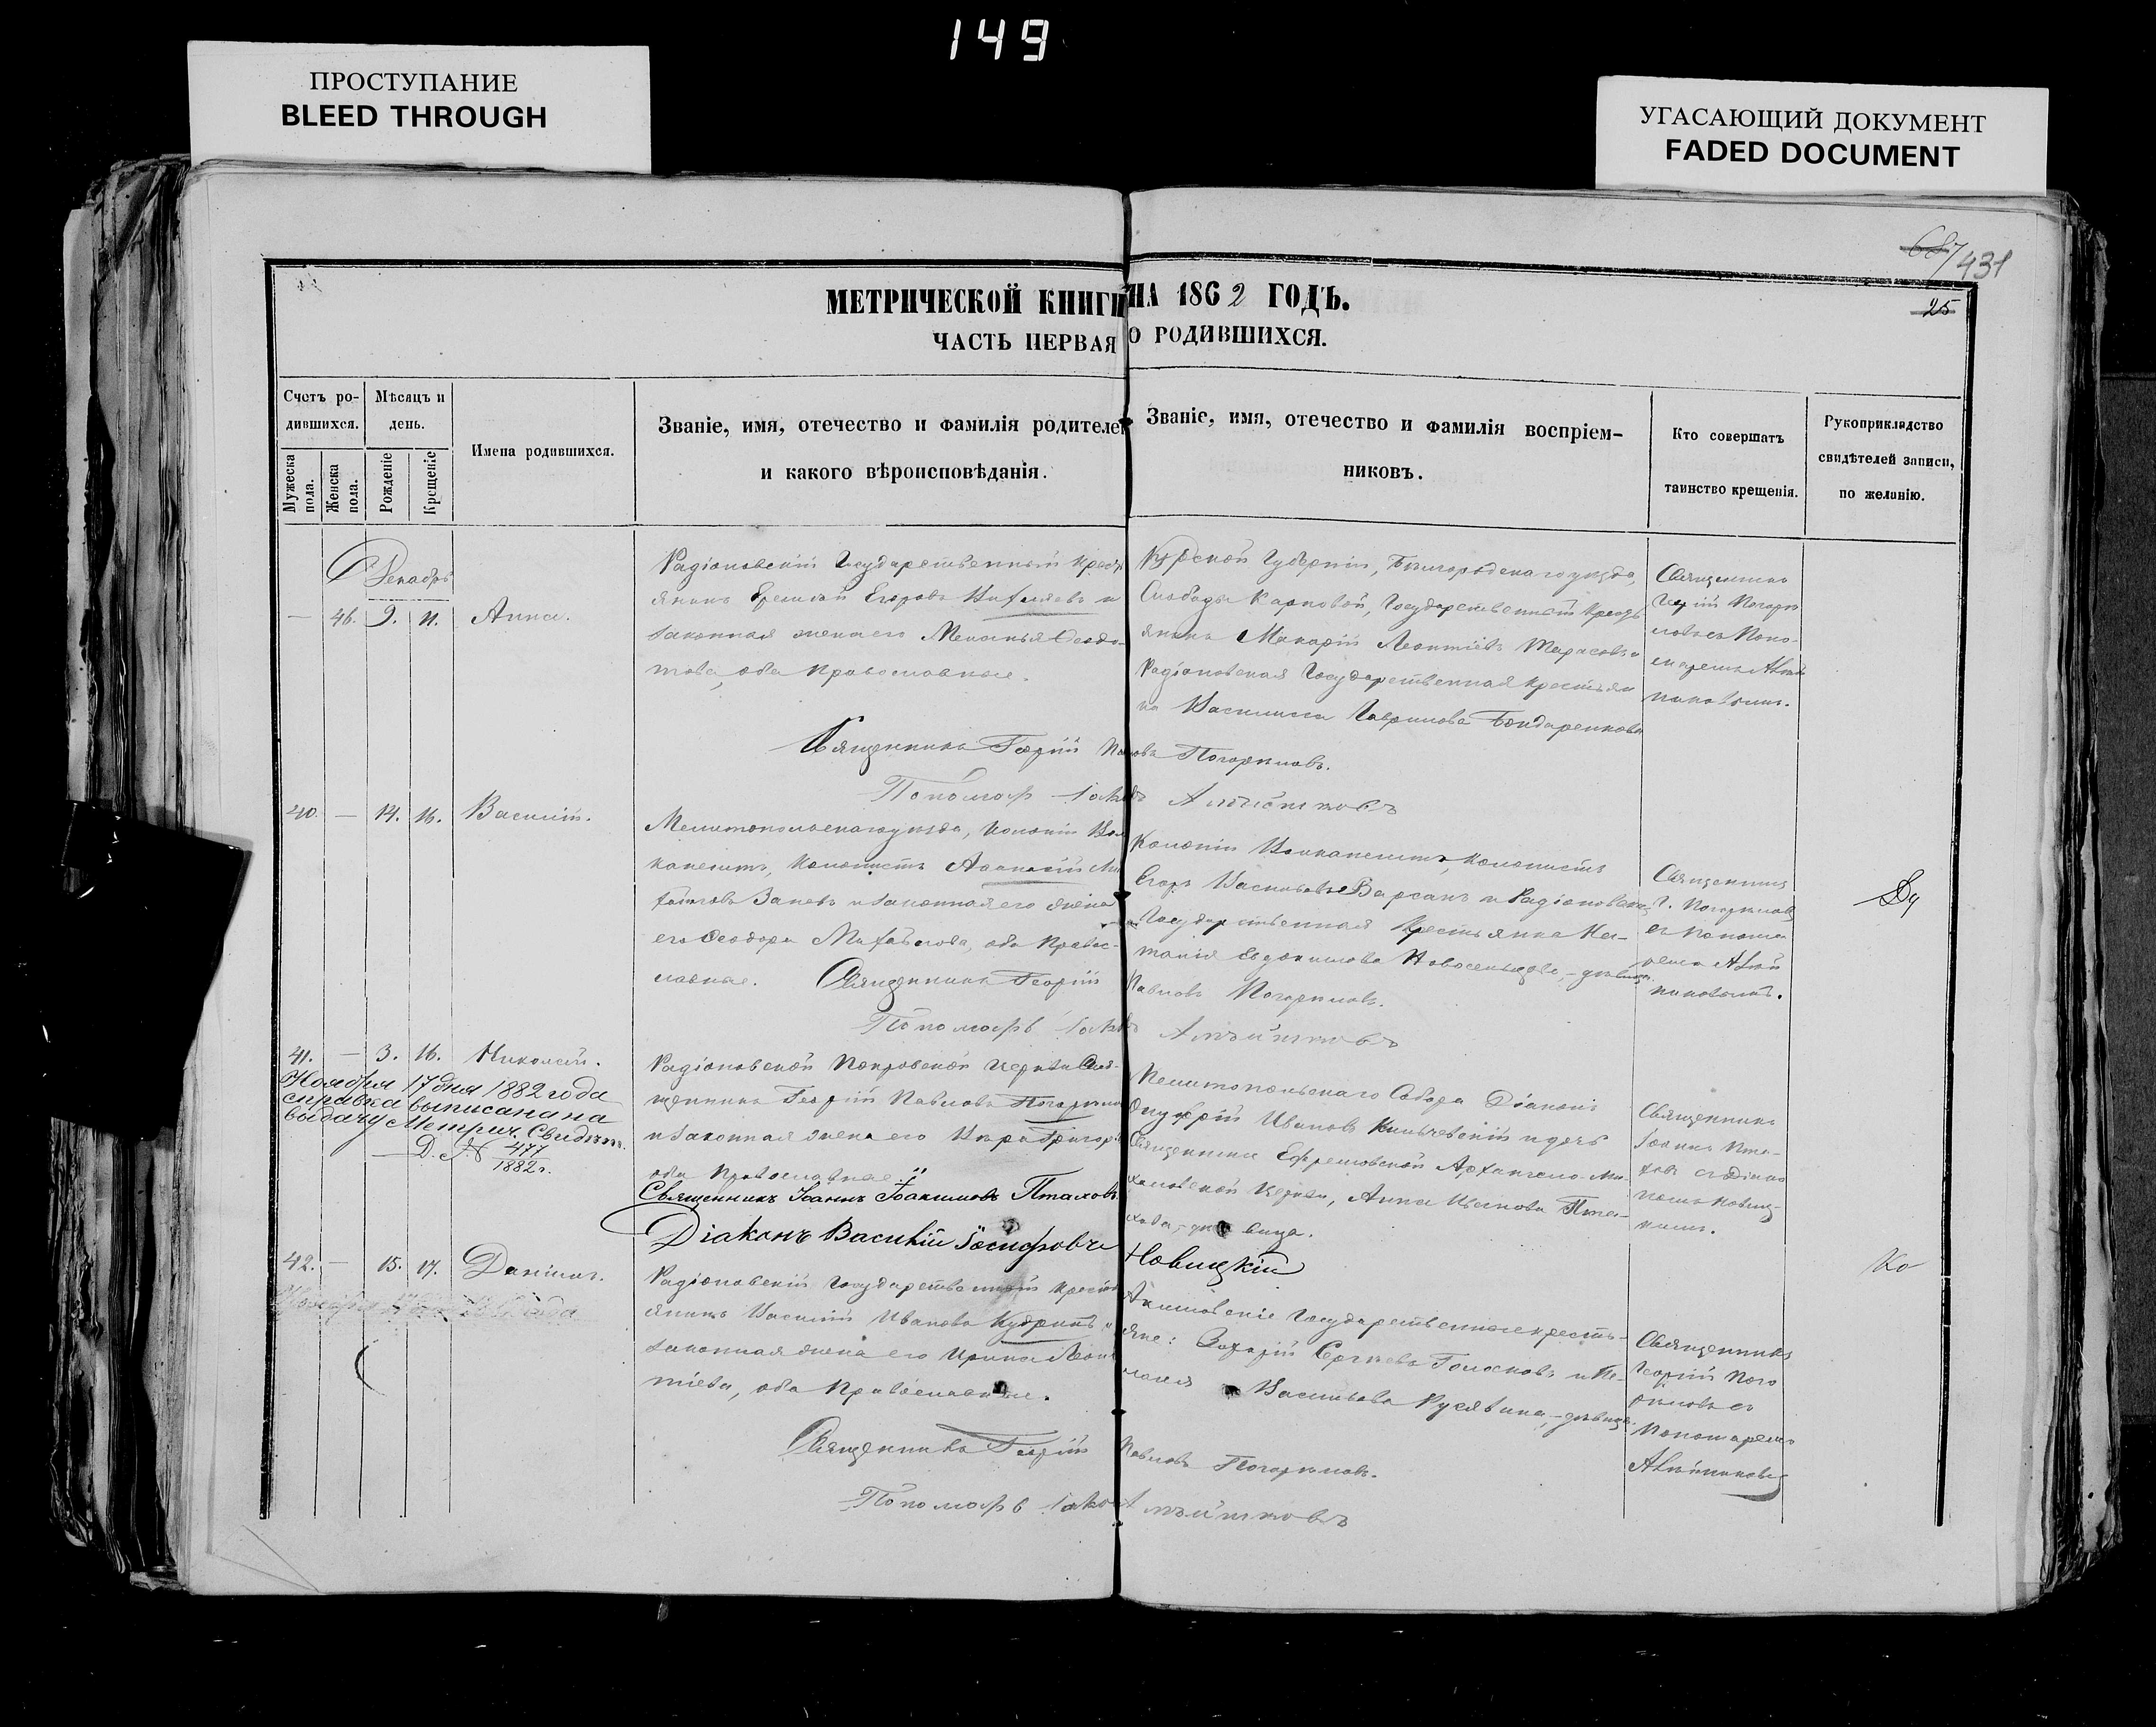 149
ПРОСТУПАНИЕ
BLEED THROUGH
УГАСАЮЩИЙ ДОКУМЕНТ
FADED DOCUMENT
687/431
25
МЕТРИЧЕСКОЙ КНИГИ НА 1862 ГОДЪ.
ЧАСТЬ ПЕРВАЯ О РОДИВШИХСЯ.
Счетъ ро-
дившихся.
Мужеска
пола.
Женска
пола.
Мѣсяцъ и
день.
Рожденіе
Крещеніе
Имена родившихся.
Званіе, имя, отечество и фамилія родителей
и какого вѣроисповѣданія.
Званіе, имя, отечество и фамилія воспріем-
никовъ.
Кто совершатъ
таинство крещенія.
Рукоприкладство
свидѣтелей записи,
по желанію.
Декабрь
— 46. 9. 11. Анна.
Радіоновскій Государственный Кресть
янинъ Еремѣй Егоровъ и
законная жена его Меланья Ѳеодо-
това, оба Православные.
Курской Губерніи, Бѣлгородскаго уѣзда,
Слободы Карповой, Государственный Кресть
янинъ Макарій Леонтіевъ Тарасовъ и
Радіоновская Государственная крестьян
ка Василисса Гаврилова Бондаренкова
Священникъ
Георгій Погорѣ
ловъ съ Поно-
маремъ
Священникъ Георгій Павловъ Погорѣловъ.
Пономарь Іаковъ
40. — 14. 16. Василій.
Мелитопольскаго уѣзда, Колоніи Вол
канешть, Колонистъ Аѳанасій Ми
хайловъ Заневъ и законная его жена
его Ѳеодора Михайлова, оба Правос-
лавные.
Колоніи Волканешть, колонистъ
Егоръ Васильевъ Варсанъ и Радіоновская
Государственная Крестьянка На-
талія Евдокимова Новосельцева, – дѣвица.
Священникъ
Г. Погорѣловъ
съ Понома
ремъ
Священникъ Георгій Павловъ Погорѣловъ.
Пономарь Іаковъ
41. — 3. 16. Николай.
Ноября 17 дня 1882 года
справка выписана на
выдачу Метрич. Свидѣт.
Д. № 477
1882 г.
Радіоновской Покровской Церкви Свя-
щенникъ Георгій Павловъ Погорѣло
и законная жена его Вѣра Григорь
оба Православные.
Мелитопольскаго Собора Діаконъ
Онуфрій Ивановъ и дочь
Священника Ефремовской Архангело-Ми-
хаиловской Церкви, Анна Иванова Пта-
хова, – дѣвица.
Священникъ
Іоаннъ Пта-
ховъ съ Діако
номъ Новиц-
кимъ.
Священникъ Іоаннъ Іоакимовъ Птаховъ
Діаконъ Василій Іосифовъ Новицкій
42. — 15. 17. Даніилъ.
Радіоновскій Государственный Кресть
янинъ Василій Ивановъ Кудринъ и
законная жена его Ирина Леон
тіева, оба Православные.
Акимовскіе Государственные кресть-
яне: Захарій Сергѣевъ Голосковъ и Пе-
лагея Васильева Русявина, – дѣвица.
Священникъ
Георгій Пого
рѣловъ съ
Пономаремъ
Священникъ Георгій Павловъ Погорѣловъ.
Пономарь Іаковъ